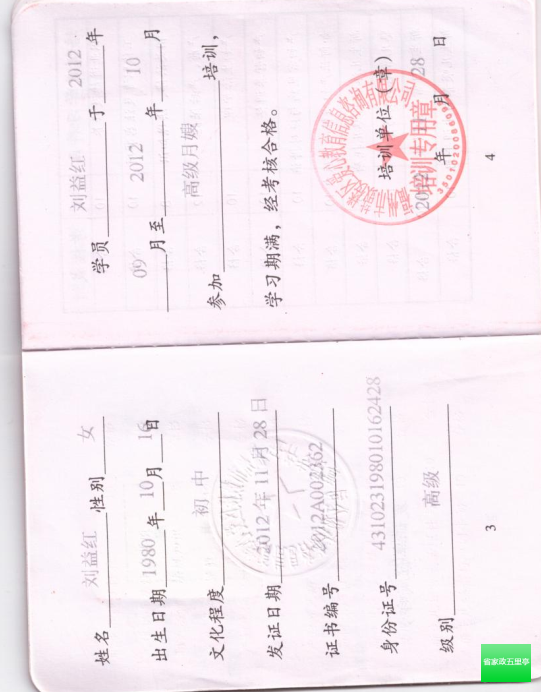 学员 刘益红 于 2012 年
09 月至 2012 年 10 月
参加 高级月嫂 培训，
学习期满，经考核合格。
培训单位（章）
培训专用章
年 月 28 日
4
姓名 刘益红 性别 女
出生日期 1980 年 10 月 16 日
文化程度 初中
发证日期 2012 年 11 月 28 日
证书编号 2012A002362
身份证号 431023198010162428
级别 高级
3